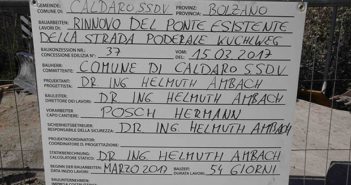 GEMEINDE: COMUNE DI: CALDARO SSDV. PROVINZ: PROVINCIA: BOLZANO
BAUARBEITEN: LAVORI DI: RINNOVO DEL PONTE ESISTENTE
DELLA STRADA PODERALE KUCHLWEG
BAUKONZESSION NR.: CONCESSIONE EDILIZIA N°: 37 VOM: DEL: 15.03.2017
BAUHERR: COMMITTENTE: COMUNE DI CALDARO SSDV.
PROJEKTANT: PROGETTISTA: DR ING HELMUTH AMBACH
BAULEITER: DIRETTORE DEI LAVORI: DR ING HELMUTH AMBACH
VORARBEITER CAPO CANTIERE: POSCH HERMANN
SICHERHEITSBEREUER: RESPONSABILE DELLA SICUREZZA: DR ING. HELMUTH AMBACH
PROJEKTKOORDINATOR: COORDINATORE DI PROGETTAZIONE:
STATISCHE BERECHNUNG: CALCOLATORE STATICO: DR ING HELMUTH AMBACH
BEGINN DER BAUARBEITEN: DATA INIZIO LAVORI: MARZO 2017 BAUZEIT: DURATA LAVORI: 54 GIORNI